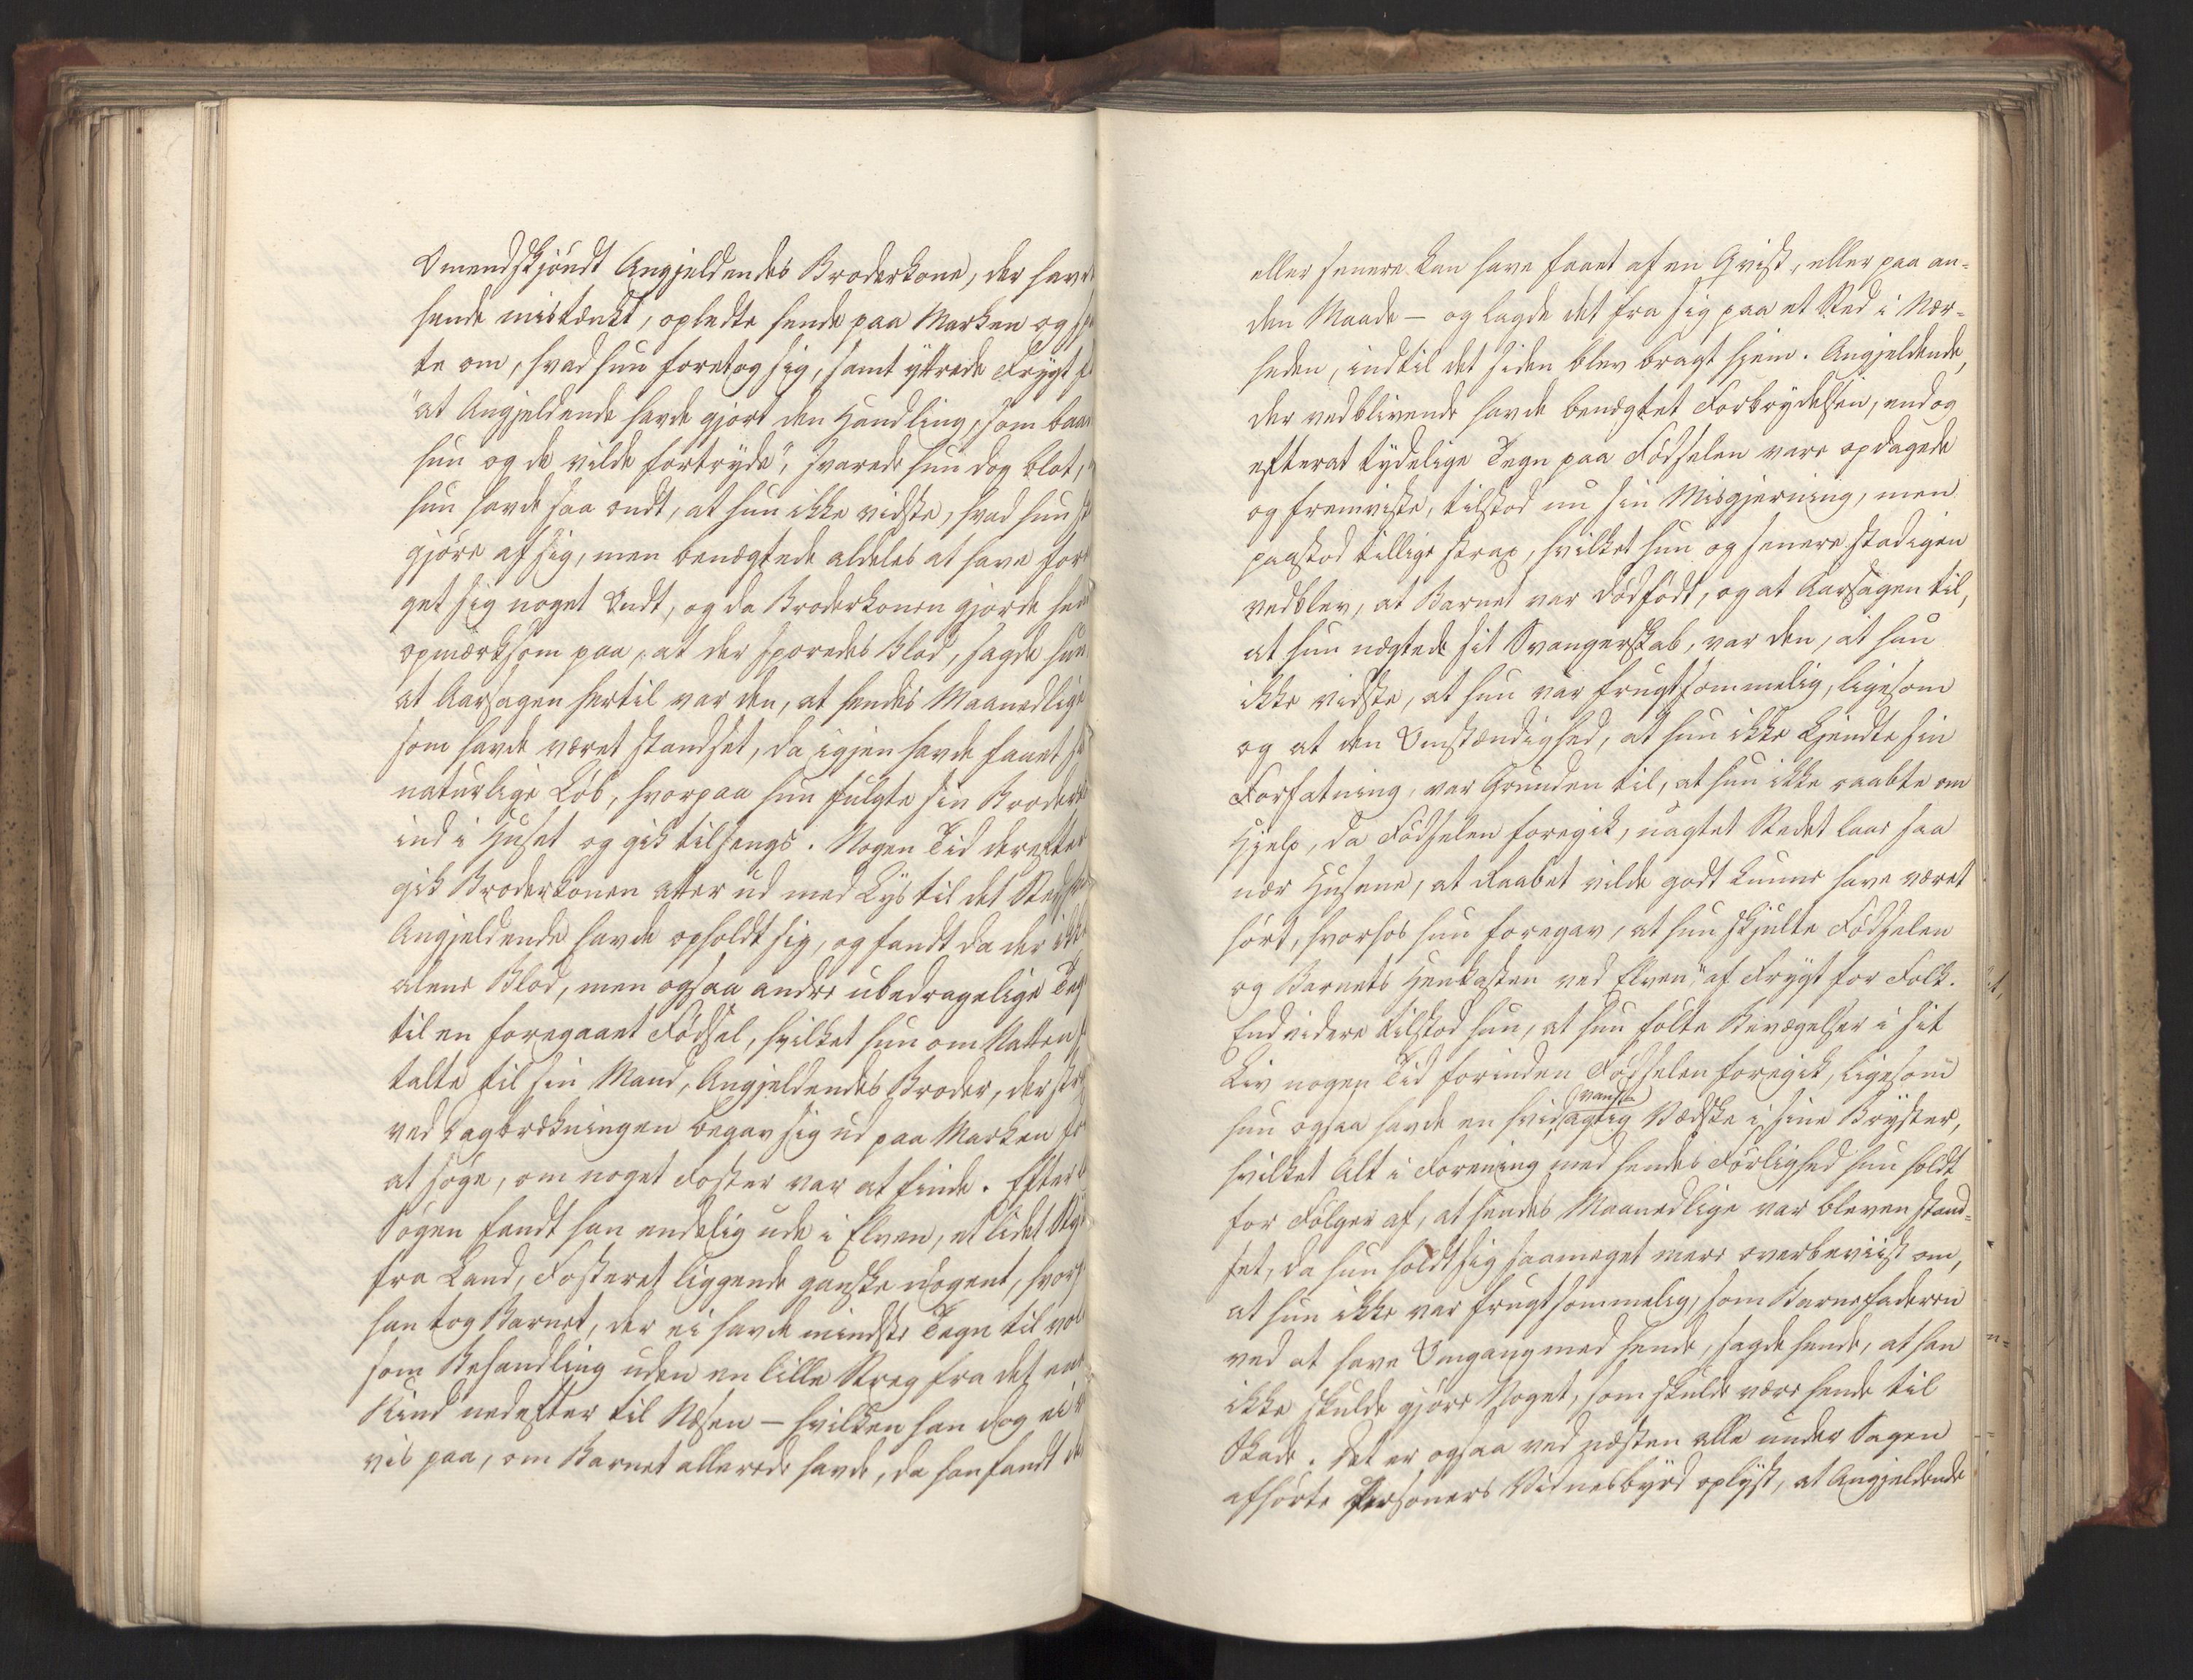 Omendskjøndt Angjeldendes Broderkone, der havde
hende mistænkt, opledte hende paa Marken og
te om, hvad hun foretog sig, samt yttrede Frygt
"at Angjeldende havde gjort den Handling, som baade
hun og de vilde fortryde", svarede hun dog blot,
hun havde saa ondt, at hun ikke vidste, hvad hun
gjøre af sig, men benægtede aldeles at have fore
get sig noget Ondt, og da Broderkonen gjorde hende
opmærksom paa, at der sporedes Blod, sagde hun
at Aarsagen hertil var den, at hendes Maanedlige
som havde været standset, da igjen havde faaet
naturlige Løb, hvorpaa hun fulgte sin Broder
ind i Huset og gik tilsengs. Nogen Tid derefter
gik Broderkonen atter ud med Lys til det Sted
Angjeldende havde opholdt sig, og fandt da der ikke
alene Blod, men ogsaa andre ubedragelige Tegn
til en foregaaet Fødsel, hvilket hun om Natten
talte til sin Mand, Angjeldendes Broder, der strax
ved Dagbrækningen begav sig ud paa Marken for
at søge, om noget Foster var at finde. Efter
Søgen fandt han endelig ude i Elven, et lidet Stykke
fra Land, Fosteret liggende ganske nøgent, hvor
han tog Barnet, der ei havde mindste Tegn til vold
som Behandling uden en lille Streg fra det ene
Kind nedefter til Næsen – hvilken han dog ei
vis paa, om Barnet allerede havde, da han fandt det
eller senere kan have faaet af en Qvist, eller paa an=
den Maade – og lagde det fra sig paa et Sted i Nær=
heden, indtil det siden blev bragt hjem. Angjeldende,
der vedblivende havde benægtet Forbrydelsen, endog
efterat tydelige Tegn paa Fødselen vare opdagede
og fremviste, tilstod nu sin Misgjerning, men
paastod tillige strax, hvilket hun og senere stadigen
vedblev, at Barnet var dødfødt, og at Aarsagen til,
at hun nægtede sit Svangerskab, var den, at hun
ikke vidste, at hun var frugtsommelig, ligesom
og at den Omstændighed, at hun ikke kjendte sin
Forfatning, var Grunden til, at hun ikke raabte om
Hjelp, da Fødselen foregik, uagtet Stedet laae saa
nær Husene, at Raabet vilde godt kunne have været
hørt, hvorhos hun foregav, at hun skjulte Fødselen
og Barnets Henkasten ved Elven "af Frygt for Folk.
Endvidere tilstod hun, at hun følte Bevægelser i sit
Liv nogen Tid forinden Fødselen foregik, ligesom
hun ogsaa havde en hvidagtig Vædske i sine Bryster,
hvilket Alt i Forening med hendes Førlighed hun holdt
for Følger af, at hendes Maanedlige var bleven stand=
set, da hun holdt sig saameget mere overbeviist om,
at hun ikke var frugtsommelig, som Barnefaderen
ved at have Omgang med hende, sagde hende, at han
ikke skulde gjøre Noget, som skulde være hende til
Skade. Det er ogsaa ved næsten alle under Sagen
afhørte Personers Vidnesbyrd oplyst, at Angjeldende